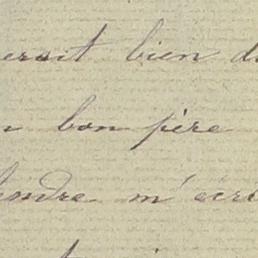 erait bien d
n bon père
endre m'écri